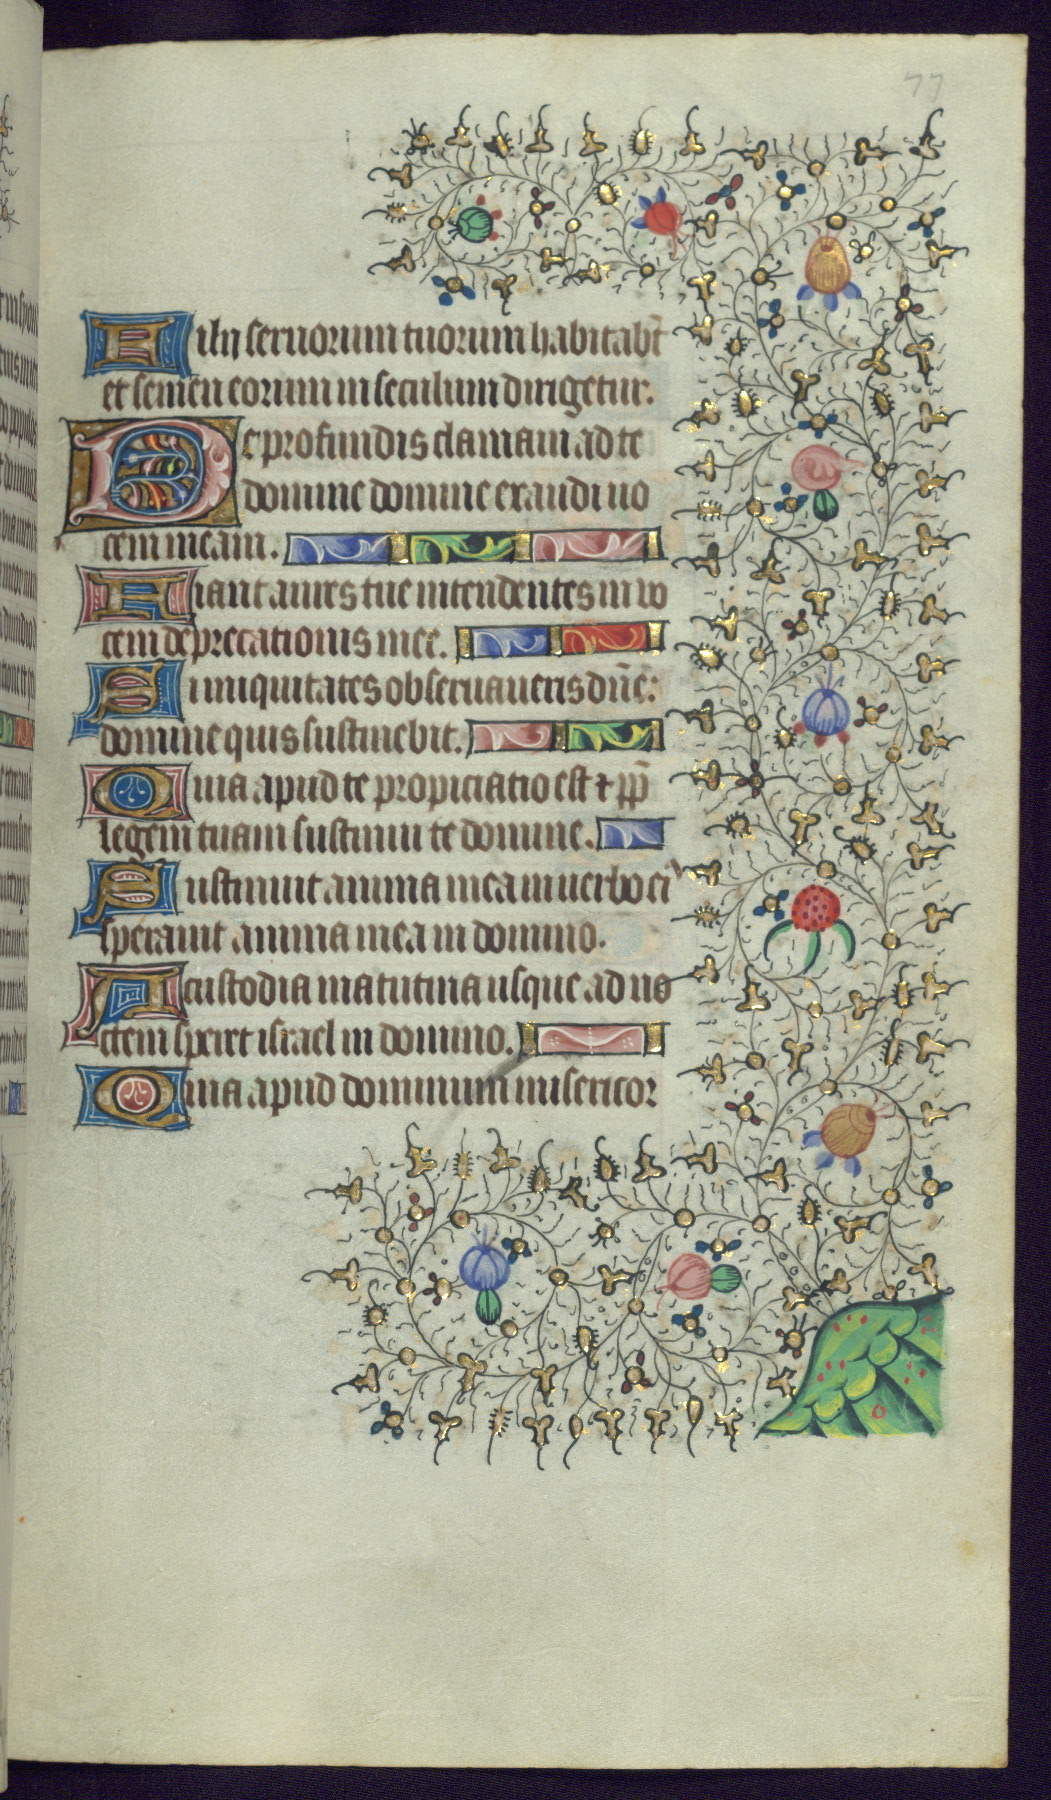 77
Filij seruorum tuorum habitabūt
et semen eorum in seculum dirigetur.
De profundis clamaui ad te
domine domine exaudi uo
cem meam.
Fiant aures tue intendentes in vo
cem deprecationis mee.
Si iniquitates obseruaueris dn̄e:
domine quis sustinebit.
Quia apud te propiciatio est ⁊ pp̄
legem tuam sustinui te domine.
Sustinuit anima mea in uerbo ei
sperauit anima mea in domino.
A custodia matutina usque ad no
ctem speret israel in domino.
Quia apud dominum misericor